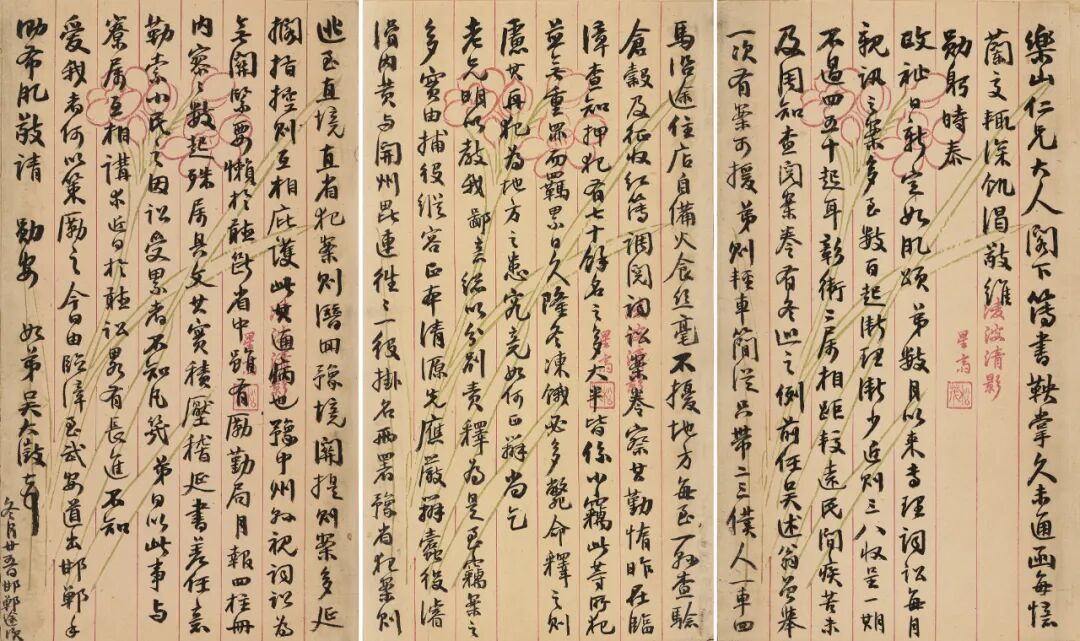 樂山仁兄大人閣下簿書鞅掌久未通函每懷
蘭交輒深飢渴敬維
勛躬時泰
政祉日新定如肊頌弟數月以來專理詞訟每月
親訊之案多至數百起漸理漸少近則三八收呈一期
不過四五十起耳彰衛二屬相距較遠民間疾苦未
及周知查閱案卷有冬巡之例前任吳述翁曾舉
一次有案可援弟則輕車簡從只帶二三僕人一車四
馬沿途住店自備火食絲毫不擾地方每至一縣查驗
倉穀及征收紅簿調閱詞訟案卷察其勤惰昨在臨
漳查知押犯有七十餘名之多大半皆係小竊此等所犯
並無重罪而羈累日久隆冬凍餓必多斃命釋之則
慮其再犯為地方之患究竟如何正辦尚乞
老兄明以教我鄙意總以分別責釋為是至竊案之
多實由捕役縱容正本清源先應嚴辦蠹役濬
滑內黃與開州毘連往往一役掛名兩署豫省犯案則
逃至直境直省犯案則匿回豫境關提則案多延
擱指控則互相庇護此其通病也豫中州縣視詞訟為
無關緊要懶於聽斷省中雖有勵勤局月報四柱冊
內寥寥數起殊屬具文其實積壓稽延書差任意
勒索小民之因訟受累者不知凡幾弟日以此事與
寮屬互相講求近日於聽訟畧有長進不知
愛我者何以策勵之今日由臨漳至武安道出邯鄲手
泐布肊敬請 勛安 如弟吳大澂頓首
冬月廿五日邯鄲途次
淩波清影